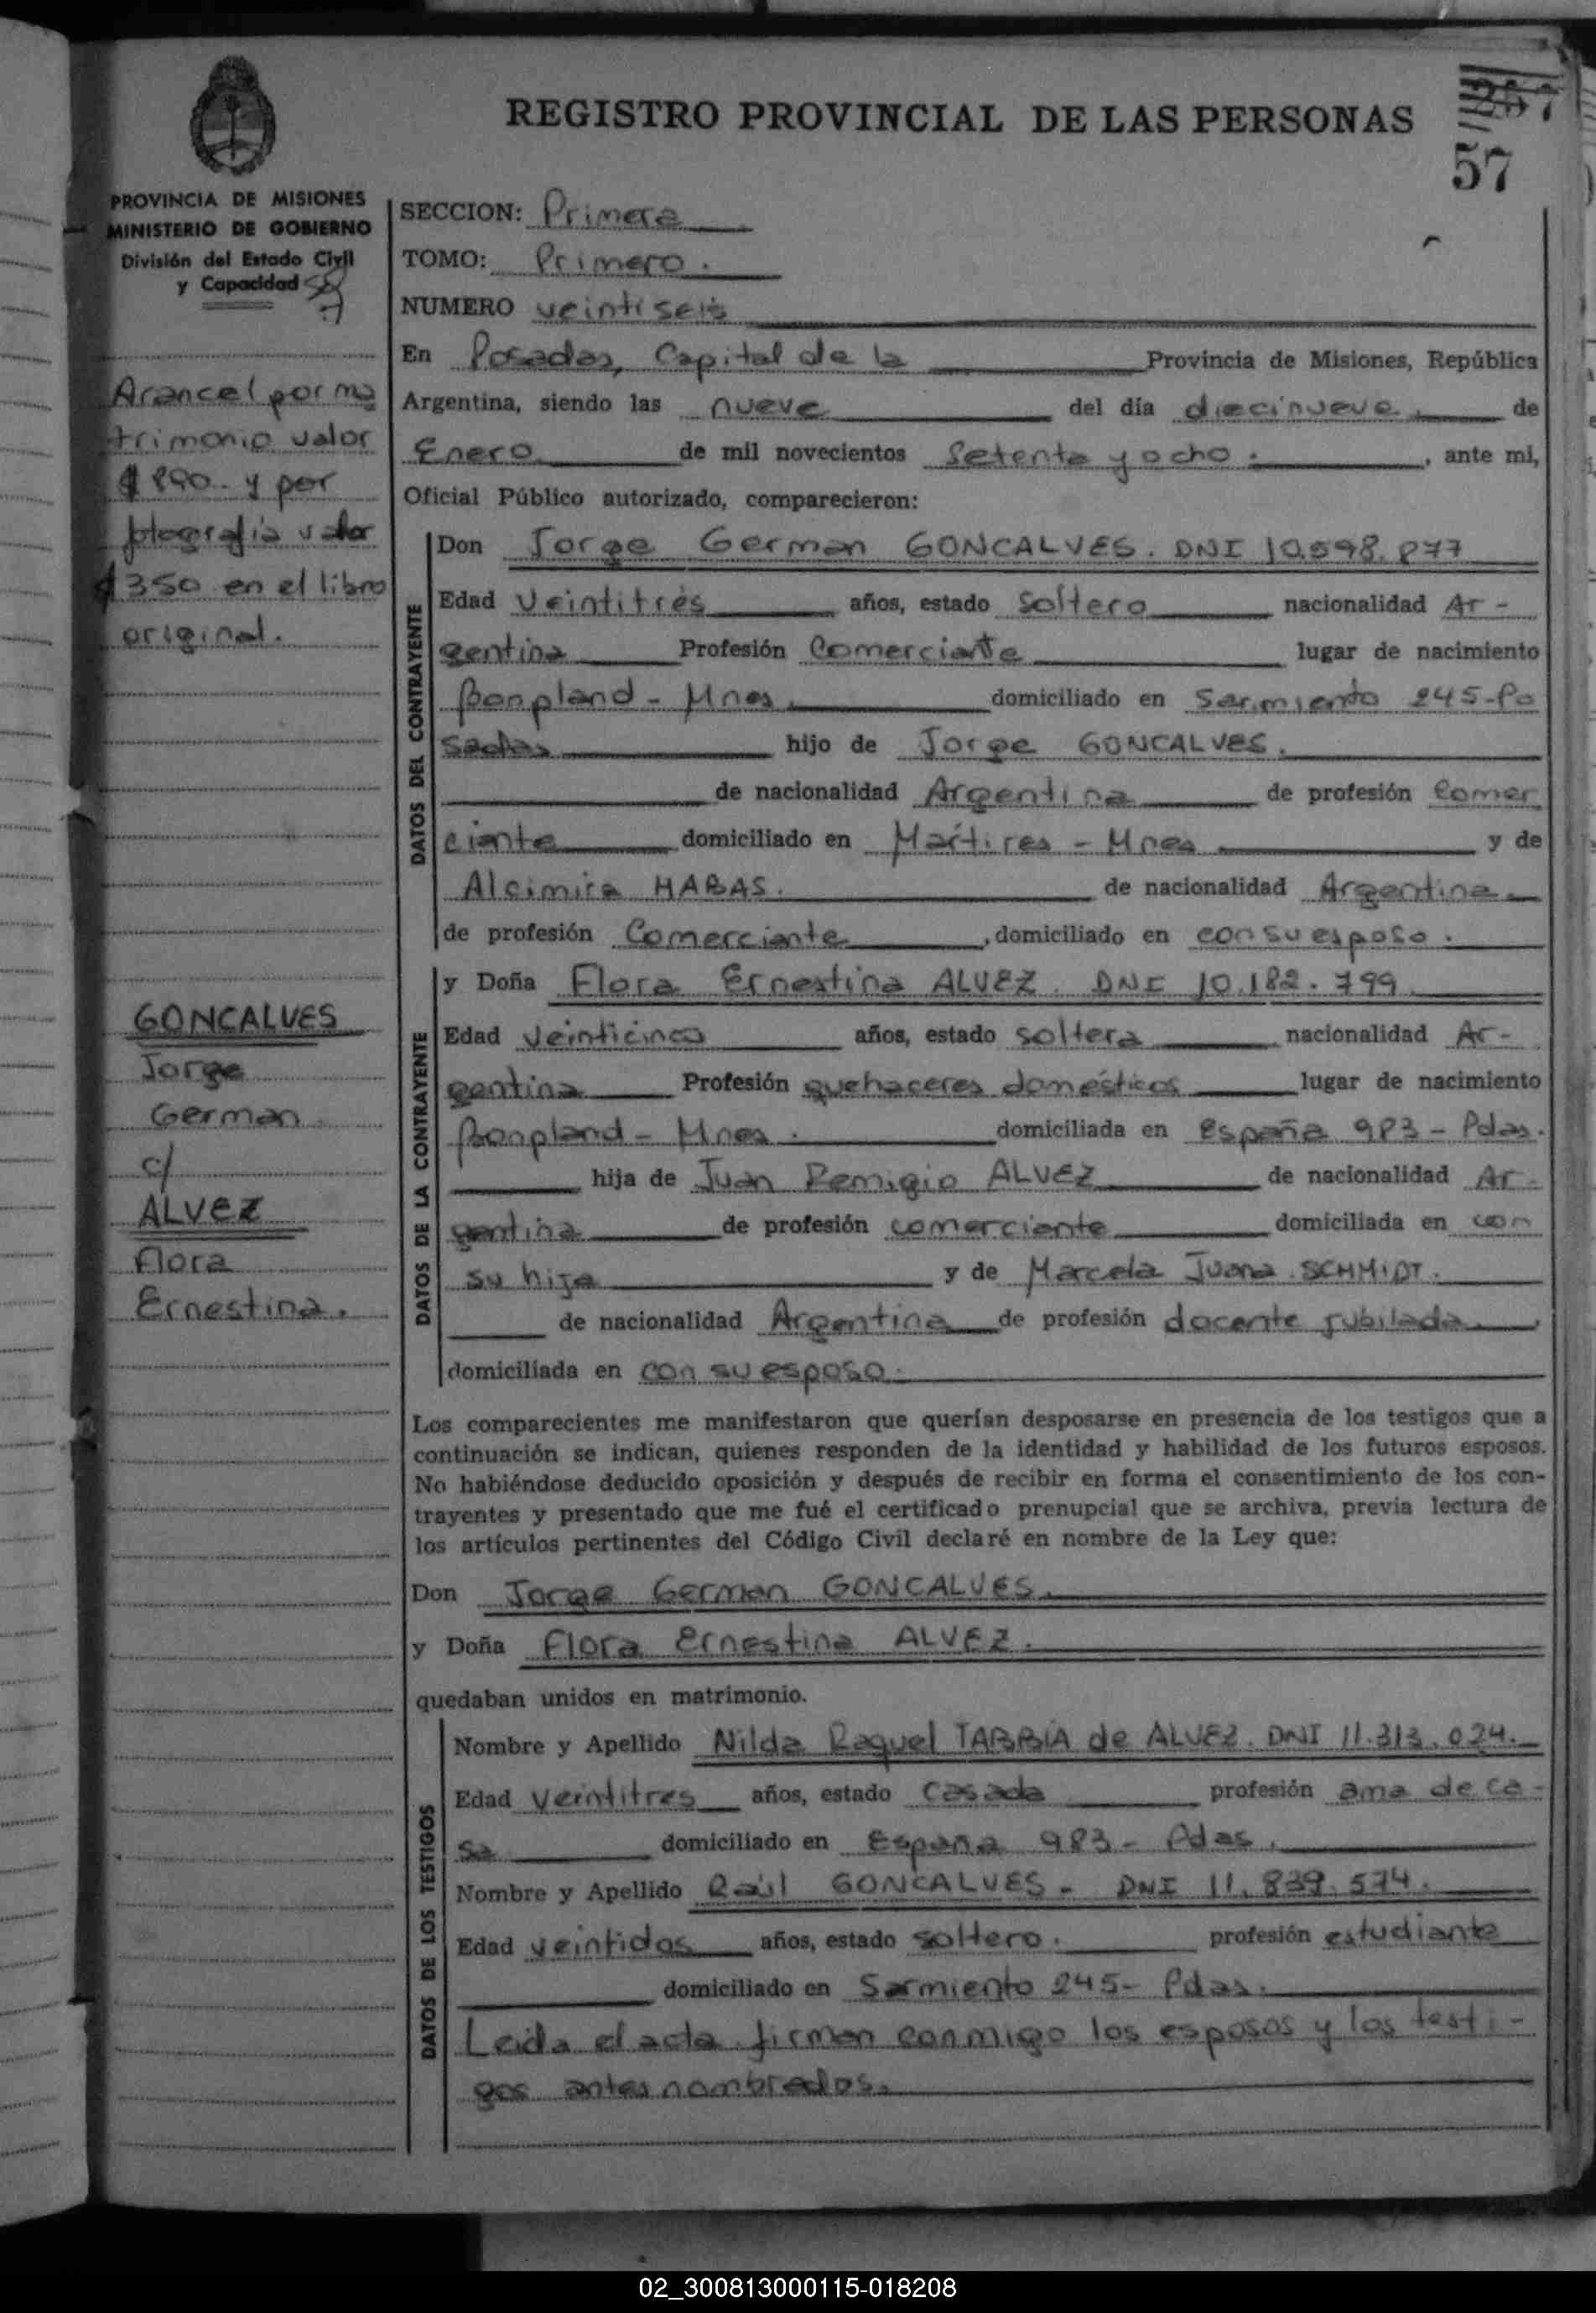 REGISTRO PROVINCIAL DE LAS PERSONAS
57
PROVINCIA DE MISIONES
MINISTERIO DE GOBIERNO
División del Estado Civil
y Capacidad
Arancel por ma
trimonio valor
$ 890.- y por
fotografia valor
$ 350 en el libro
original.
GONCALVES
Jorge
German
c/
ALVEZ
Flora
Ernestina.
SECCION: Primera
TOMO: Primero.
NUMERO veintiseis
En Posadas, Capital de la Provincia de Misiones, República
Argentina, siendo las nueve del día diecinueve de
Enero de mil novecientos setenta y ocho. , ante mi,
Oficial Público autorizado, comparecieron:
DATOS DEL CONTRAYENTE
Don Jorge German GONCALVES. DNI 10.598.877
Edad Veintitrés años, estado soltero nacionalidad Ar-
gentina Profesión Comerciante lugar de nacimiento
Bonpland - Mnes domiciliado en Sarmiento 245-Po
sadas hijo de Jorge GONCALVES.
de nacionalidad Argentina de profesión Comer
ciante domiciliado en Mártires - Mnes y de
Alcimira HABAS. de nacionalidad Argentina
de profesión Comerciante , domiciliado en con su esposo.
DATOS DE LA CONTRAYENTE
y Doña Flora Ernestina ALVEZ. DNI 10.182.799
Edad Veinticinco años, estado soltera nacionalidad Ar-
gentina Profesión quehaceres domésticos lugar de nacimiento
Bonpland - Mnes. domiciliada en España 983 - Pdas.
hija de Juan Remigio ALVEZ de nacionalidad Ar-
gentina de profesión comerciante domiciliada en con
su hija y de Marcela Juana SCHMIDT.
de nacionalidad Argentina de profesión docente jubilada
domiciliada en con su esposo.
Los comparecientes me manifestaron que querían desposarse en presencia de los testigos que a
continuación se indican, quienes responden de la identidad y habilidad de los futuros esposos.
No habiéndose deducido oposición y después de recibir en forma el consentimiento de los con-
trayentes y presentado que me fué el certificado prenupcial que se archiva, previa lectura de
los artículos pertinentes del Código Civil declaré en nombre de la Ley que:
Don Jorge German GONCALVES.
y Doña Flora Ernestina ALVEZ.
quedaban unidos en matrimonio.
DATOS DE LOS TESTIGOS
Nombre y Apellido Nilda Raquel TABBIA de ALVEZ. DNI 11.313.024.
Edad veintitres años, estado casada profesión ama de ca-
sa domiciliado en España 983 - Pdas.
Nombre y Apellido Raúl GONCALVES - DNI 11.839.574.
Edad veintidos años, estado soltero. profesión estudiante
domiciliado en Sarmiento 245- Pdas.
Leida el acta firman conmigo los esposos y los testi-
gos antes nombrados.
02_300813000115-018208